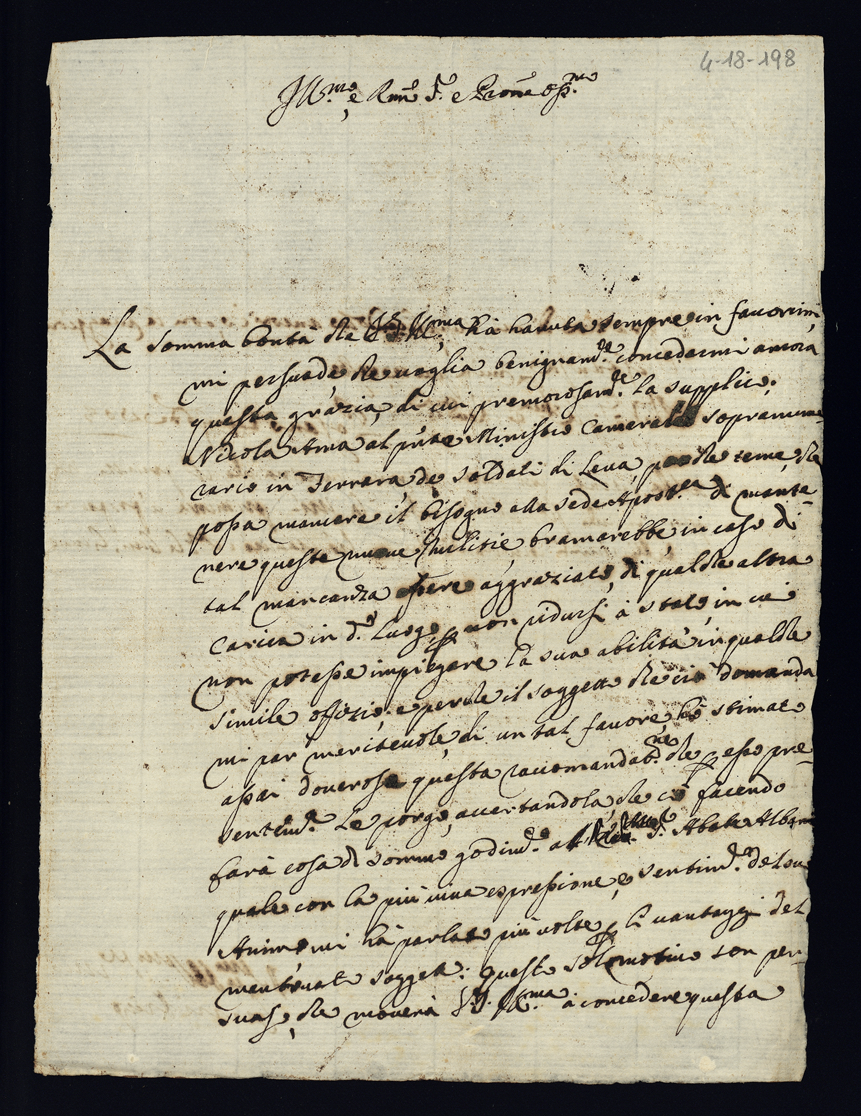 4-18-198
Ill.mo e Rmo S.r e Prone Oss.mo
La somma bontà che V.S. Ill.ma hà havuta sempre in favorirmi,
mi persuade che voglia benignam.te concedermi ancora
questa grazia, di cui premurosam.te la supplico.
Nicola Ama al pñte Ministro Camerale sopranume-
rario in Ferrara de soldati di Leva, perche teme, che
possa mancare il bisogno alla Sede Apost.ca di mante-
nere queste nuove Militie bramarebbe in caso di
tal mancanza essere aggraziato di qualche altra
carica in d.o Luogo p non ridursi à stato, in cui
non potesse impiegare la sua abilità in qualche
simile offizio, e perche il soggetto che ciò domanda
mi par meritevole di un tal favore hò stimato
assai doverosa questa raccomandat.ne che p esso pre-
sentem.te Le porgo, accertandola, che ciò facendo
farà cosa di sommo godim.to al S.r Abate Albani
quale con la più viva espressione, e sentim.to del suo
Animo mi hà parlato più volte p li vantaggi del
mentovato soggetto: questo solo motivo son per-
suaso, che moverà V.S. Ill.ma à concedere questa